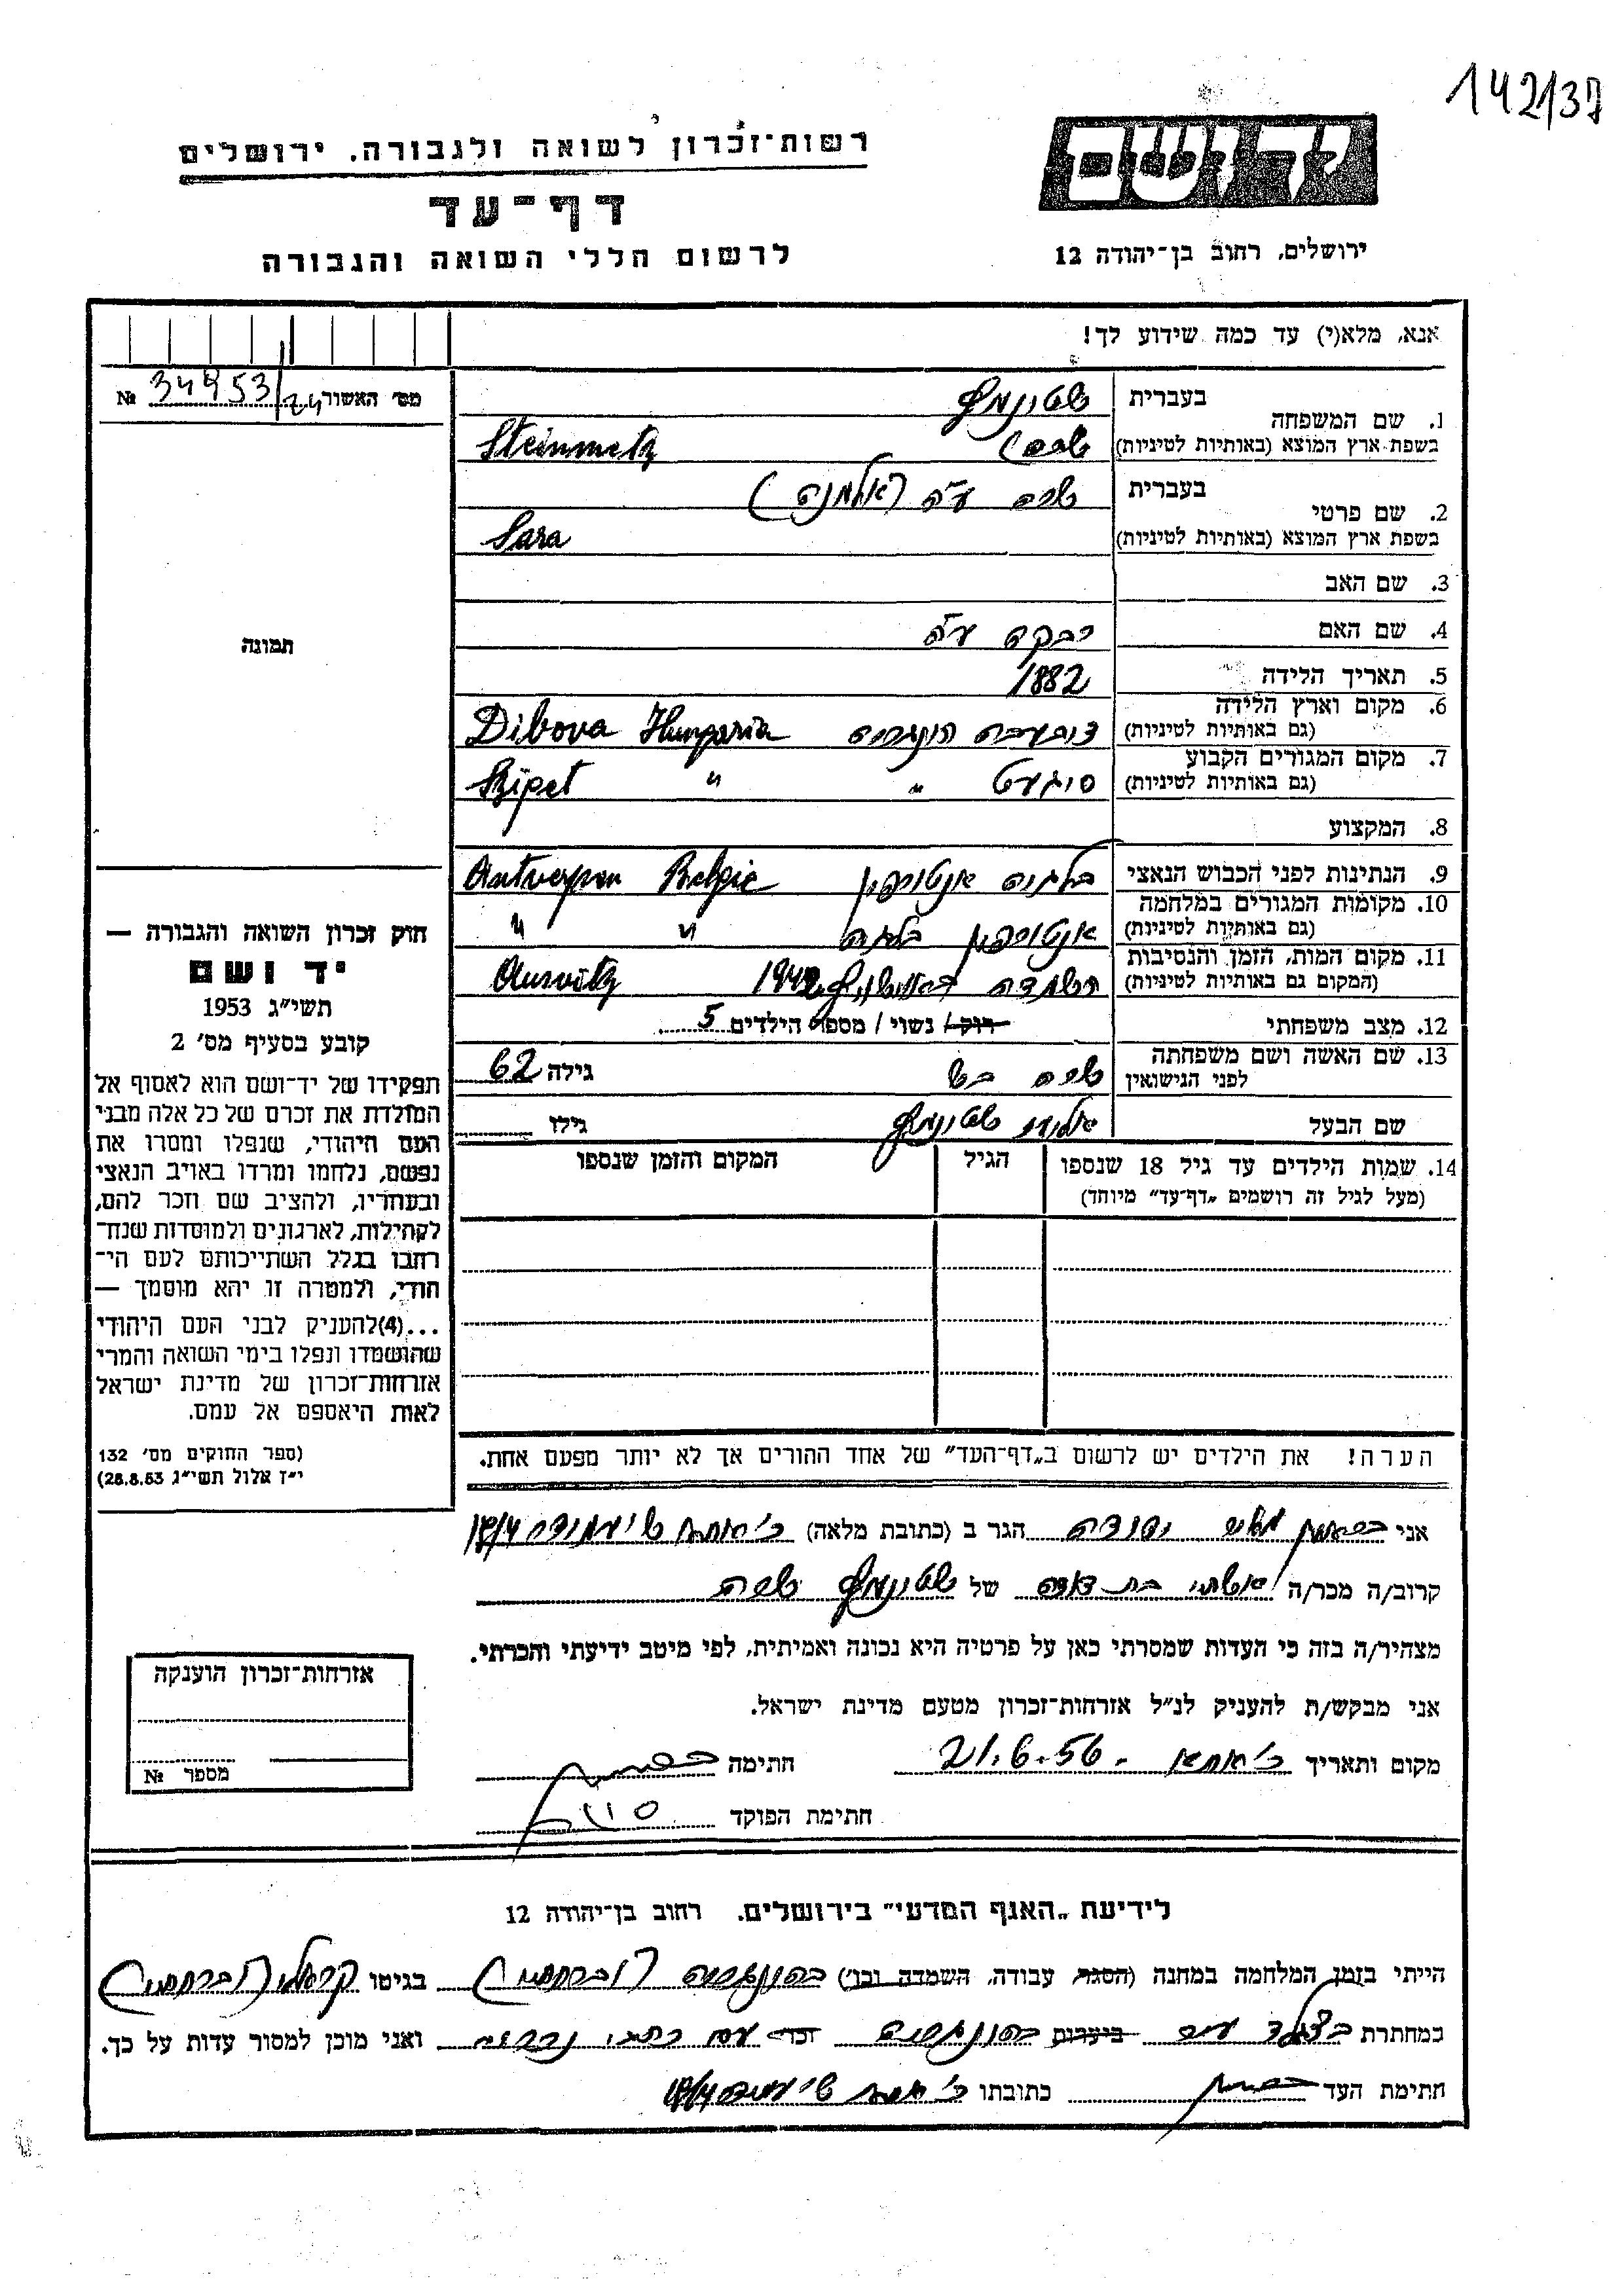 142/37
רשות־זכרון לשואה ולגבורה. ירושלים
יד ושם
דף־עד
לרשום חללי השואה והגבורה
ירושלים, רחוב בן־יהודה 12
אנא, מלא(י) עד כמה שידוע לך!
מס׳ האשור № 34953/24
1. שם המשפחה בעברית שטיינמץ
בשפת ארץ המוצא (באותיות לטיניות) Steinmetz
2. שם פרטי בעברית שרה ע״ה (אלמנה)
בשפת ארץ המוצא (באותיות לטיניות) Sara
3. שם האב
4. שם האם רבקה ע״ה
5. תאריך הלידה 1882
6. מקום וארץ הלידה (גם באותיות לטיניות) הונגריה Dibova Hungaria
7. מקום המגורים הקבוע (גם באותיות לטיניות) סיגעט " Sziget "
8. המקצוע
9. הנתינות לפני הכבוש הנאצי בלגיה אנטורפן Antverpen Belgie
10. מקומות המגורים במלחמה (גם באותיות לטיניות) אנטורפן בלגיה " "
11. מקום המות, הזמן והנסיבות (המקום גם באותיות לטיניות) הושמדה באושוויץ 1942 Ausvitz
12. מצב משפחתי רוק/ נשוי / מספר הילדים 5
13. שם האשה ושם משפחתה לפני הנישואין שרה גילה 62
שם הבעל שטיינמץ גילו
14. שמות הילדים עד גיל 18 שנספו (מעל לגיל זה רושמים „דף־עד״ מיוחד) הגיל המקום והזמן שנספו
הערה! את הילדים יש לרשום ב„דף־העד״ של אחד ההורים אך לא יותר מפעם אחת.
תמונה
חוק זכרון השואה והגבורה —
יד ושם
תשי״ג 1953
קובע בסעיף מס׳ 2
תפקידו של יד־ושם הוא לאסוף אל
המולדת את זכרם של כל אלה מבני
העם היהודי, שנפלו ומסרו את
נפשם, נלחמו ומרדו באויב הנאצי
ובעוזריו, ולהציב שם וזכר להם,
לקהילות, לארגונים ולמוסדות שנח־
רבו בגלל השתייכותם לעם הי־
הודי, ולמטרה זו יהא מוסמך —
...(4)להעניק לבני העם היהודי
שהושמדו ונפלו בימי השואה והמרי
אזרחות־זכרון של מדינת ישראל
לאות היאספם אל עמם.
(ספר החוקים מס׳ 132
י״ז אלול תשי״ג 28.8.53)
אני יהודה הגר ב (כתובת מלאה)
קרוב/ה מכר/ה של שטיינמץ שרה
מצהיר/ה בזה כי העדות שמסרתי כאן על פרטיה היא נכונה ואמיתית, לפי מיטב ידיעתי והכרתי.
אני מבקש/ת להעניק לנ״ל אזרחות־זכרון מטעם מדינת ישראל.
מקום ותאריך 21.6.56 חתימה
חתימת הפוקד
אזרחות־זכרון הוענקה
מספר №
לידיעת „האגף המדעי״ בירושלים. רחוב בן־יהודה 12
הייתי בזמן המלחמה במחנה (הסגר, עבודה, השמדה וכו׳) בהונגריה בגיטו
במחתרת ביערות בהונגריה וכו׳ עם ואני מוכן למסור עדות על כך.
חתימת העד כתובתו